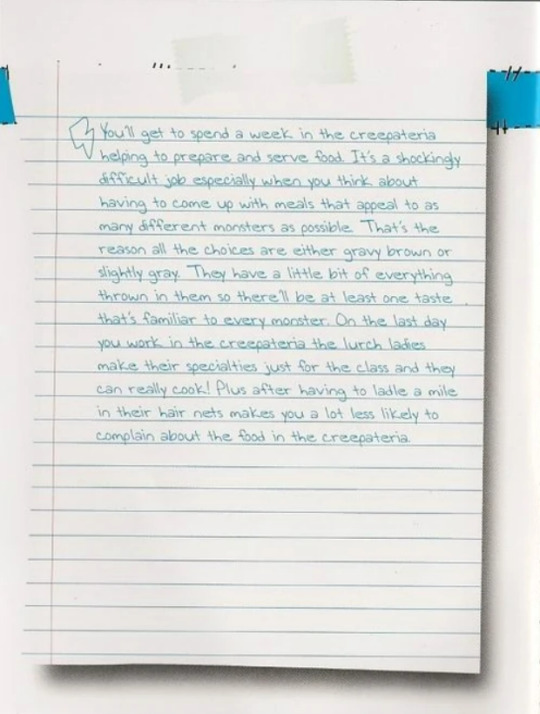 You'll get to spend a week in the creepateria
helping to prepare and serve food. It's a shockingly
difficult job especially when you think about
having to come up with meals that appeal to as
many different monsters as possible. That's the
reason all the choices are either gravy brown or
slightly gray. They have a little bit of everything
thrown in them so there'll be at least one taste
that's familiar to every monster. On the last day
you work in the creepateria the lurch ladies
make their specialties just for the class and they
can really cook! Plus after having to ladle a mile
in their hair nets makes you a lot less likely to
complain about the food in the creepateria.